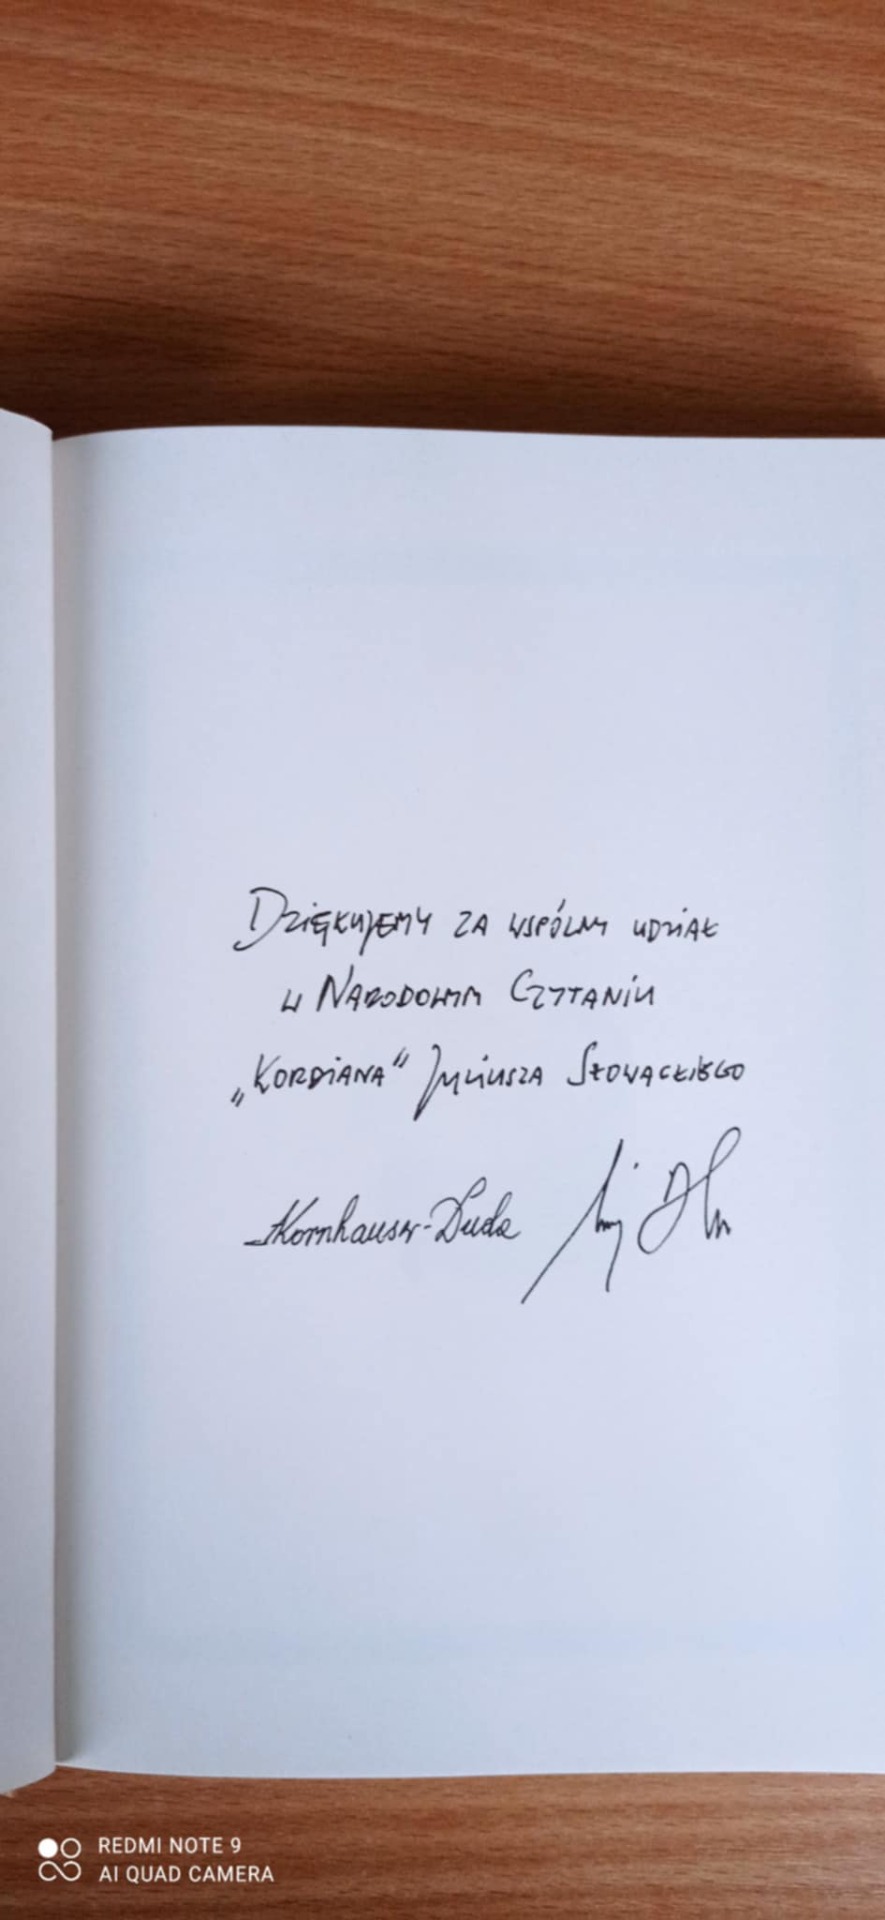 Dziękujemy za wspólny udział
w Narodowym Czytaniu
„Kordiana" Juliusza Słowackiego
AKornhauser-Duda
REDMI NOTE 9
AI QUAD CAMERA